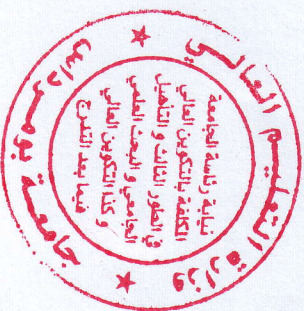 وزارة التعليم العالي
جامعة بومرداس
نيابة رئاسة الجامعة
المكلفة بالتكوين العالي
في الطور الثالث والتأهيل
الجامعي والبحث العلمي
وكذا التكوين العالي
فيما بعد التدرج